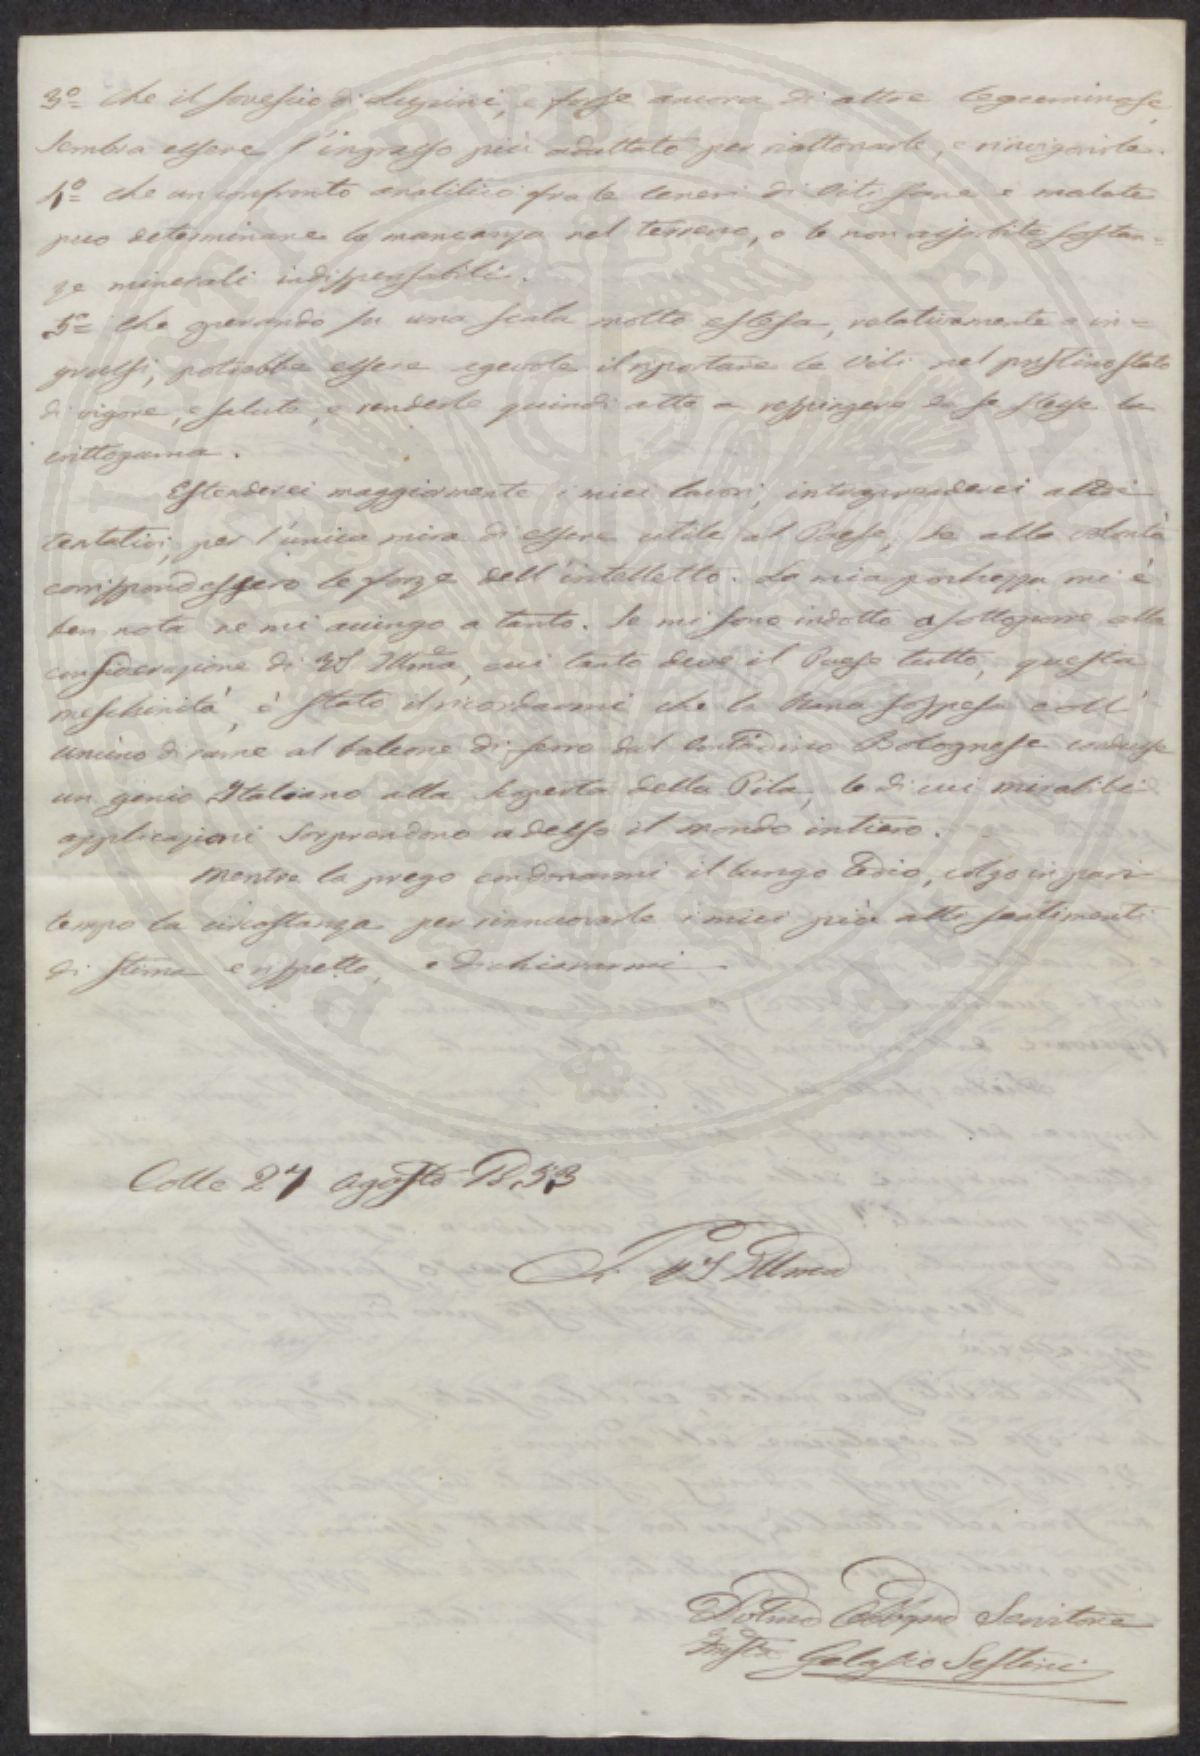 3º che il sovescio di Lupini, e forse ancora di altre leguminose,
sembra essere l'ingrasso più adattato per riattonarle, e rinvigorirle.
4º che un confronto analitico fra le ceneri di Viti sane e malate
puo determinare la mancanza nel terreno, o le non assorbite sostan=
ze minerali indispensabili.
5º che operando su una scala molto estesa, relativamente a in=
grassi, potrebbe essere agevole il riportare le Viti nel pristino stato
di vigore, e salute, e renderle quindi atte a respingere da se stesse la
crittogama.
Estenderei maggiormente i miei lavori, intraprenderei altri
tentativi, per l'unica mira di essere utile al Paese, se alla volontà
corrispondessero le forze dell'intelletto. La mia pochezza mi è
ben nota ne mi accingo a tanto. Se mi sono indotto a sottoporre alla
considerazione di VS Illma, cui tanto deve il Paese tutto, questa
meschinità, è stato il ricordarmi che la Rana sospesa coll'
uncino di rame al balcone di ferro dal Contadino Bolognese condusse
un genio Italiano alla scoperta della Pila, le di cui mirabili
applicazioni sorprendono adesso il mondo intiero.
Mentre la prego condonarmi il lungo tedio, colgo in pari
tempo la circostanza per rinnuovarle i miei più alti sentimenti
di stima e rispetto, e dichiararmi
Colle 27 Agosto 1853
Di VS Illma
Devmo Obbligmo Servitore
Galasio Sestini